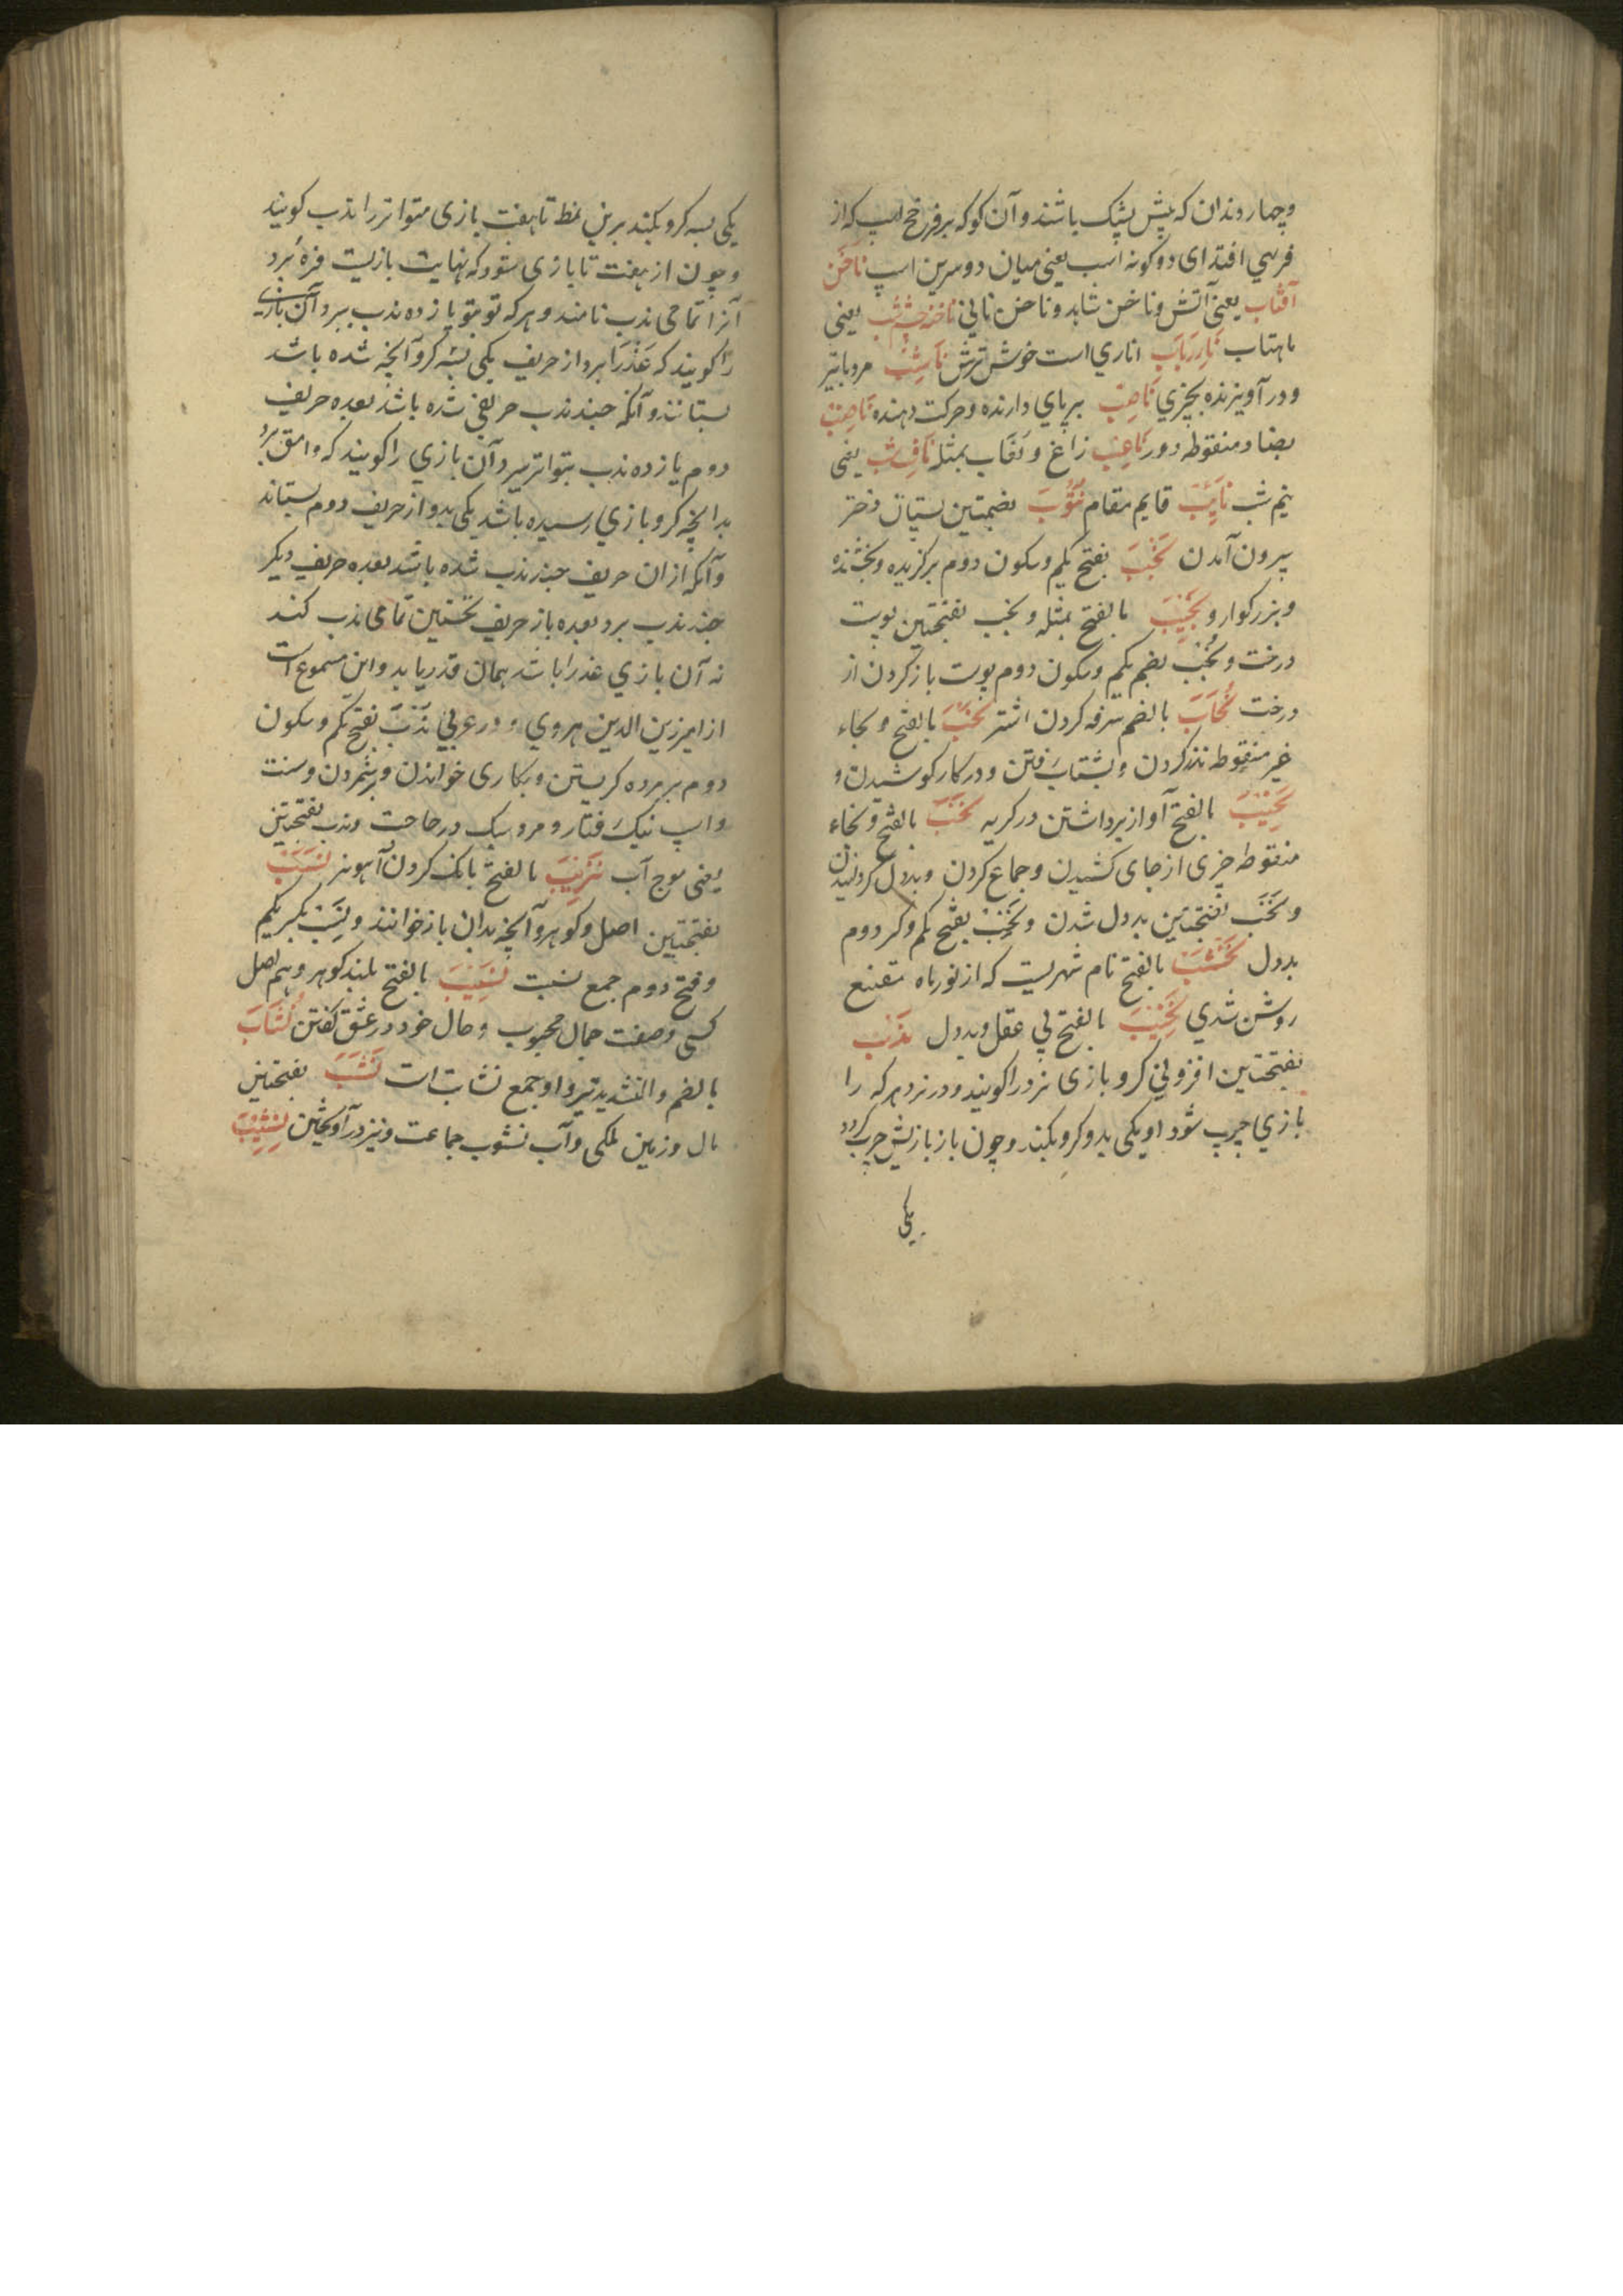 وچهار دندان که پیش پشک باشند و آن کو که بر فرخج اسپ که از
فربهی افتد ای دو کونه اسپ یعنی میان دو سرین اسپ ناخن
آفتاب یعنی آتش و ناخن شاهد و ناخن نانی ناخنه شب یعنی
ماهتاب نارِرباب اناری است خوش ترش ناشب مرد باتیر
و در آویزنده بچیزی ناصب برپای دارنده و حرکت دهنده ناضب
بضاد منقوطه دور ناعب زاغ و نعاب بمثله ناف شب یعنی
نیم شب نایب قایم مقام نتوب بضمتین پستان دختر
بیرون آمدن نجب بفتح یکم و سکون دوم برکزیده و بخشنده
و بزرکوار و نجیب بالفتح بمثله و نجب بفتحتین پوست
درخت و نجب بضم یکم و سکون دوم پوست باز کردن از
درخت نحاب بالضم سرفه کردن اشتر نحب بالفتح و بحاء
غیر منقوطه نذر کردن و بشتاب رفتن و در کار کوشیدن و
نحیب بالفتح آواز برداشتن در کریه نخب بالفتح و بخاء
منقوطه چیزی از جای کشیدن و جماع کردن و بددل کردانیدن
و نخب بفتحتین بددل شدن و نخب بفتح یکم و کسر دوم
بددل نخشب بالفتح نام شهریست که از نور ماه مقنع
روشن شدی نخیب بالفتح بی عقل و بددل ندب
بفتحتین افزونی کرو بازی نرد را کویند و در نرد هر که را
بازی چرب شود او یکی بدو کرو بکند و چون باز بازیش چرب کردد
یکی
یکی بسه کرو بکند برین نمط تا هفت بازی متواتر را ندب کویند
و چون از هفت تا بازی شود که نهایت بازیست فره برد
آنرا تمامی ندب نامند و هر که تو بتو یازده ندب ببرد آن بازی
را کویند که عذرا برد از حریف یکی بسه کرو آنچه شده باشد
بستانند و آنکه چند ندب حریفی شده باشد بعده حریف
دوم یازده ندب بتواتر ببرد آن بازی را کویند که وامق برد
بدانچه کرو بازی رسیده باشد یکی بدو از حریف دوم بستاند
و آنکه از ان حریف چند ندب شده باشد بعده حریف دیکر
چند ندب برد بعده باز حریف نخستین تمامی ندب کند
نه آن بازی عذرا باشد همان قدر یابد و این مسموع است
از امیر زین الدین هروی و در عربی ندب بفتح یکم و سکون
دوم بر مرده کریستن و بکاری خواندن و برشمردن و سنت
و اسپ نیک رفتار و مرد سبک در حاجت و ندب بفتحتین
یعنی موج آب نزیب بالفتح بانک کردن آهو نر نسب
بفتحتین اصل و کوهر و آنچه بدان باز خوانند و نسب بکسر یکم
و فتح دوم جمع نسبت نسیب بالفتح بلند کوهر و هم اصل
کسی و صفت جمال محبوب و حال خود در عشق کفتن نشاب
بالضم و التشدید تیر و او جمع نشابت است نشب بفتحتین
مال و زمین ملکی و آب نشوب جماعت و نیز در آویختن نشیب